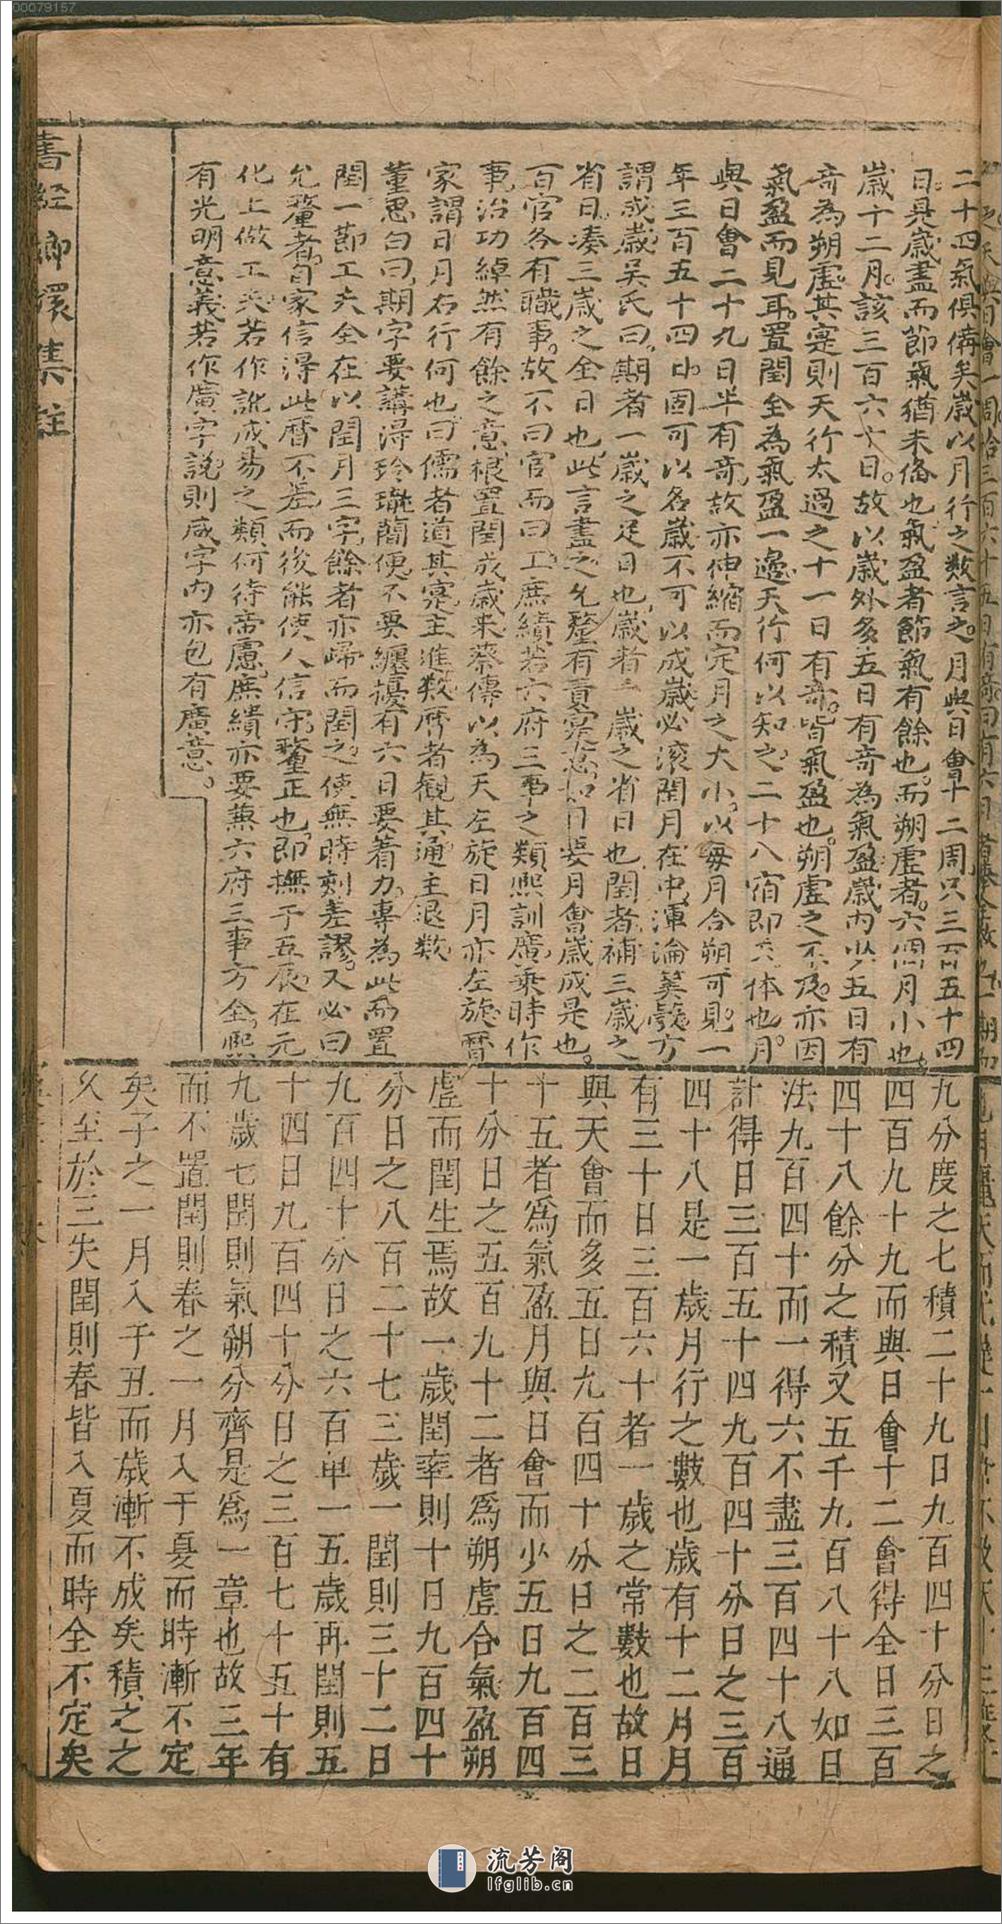 00079157
二十四氣俱備矣歲以月行之数言之月與日會十二周只三百五十四
日是歲盡而節氣猶未俻也氣盈者節氣有餘也而朔虛者六個月小也
歲十二月該三百六十日故以歲外多五日有奇為氣盈歲内少五日有
奇為朔虛其寔則天行太過之十一日有奇皆氣盈也朔虛之不及亦因
氣盈而見耳置閏全為氣盈一邊天行何以知之二十八宿即天体也月
與日會二十九日半有奇故亦伸縮而定月之大小以每月合朔可見一
年三百五十四日固可以名歲不可以成歲必滚閏月在中渾淪筭䯻方
謂成歲吴氏曰期者一歲之足日也歲者三歲之省日也閏者補三歲之
省日凑三歲之全日也此言盡之允釐有責寔意如日要月會歲成是也
百官各有職事故不曰官而曰工庶績若六府三事之類熙訓廣乘時作
事治功綽然有餘之意根置閏成歲来蔡傳以為天左旋日月亦左旋曆
家謂日月右行何也曰儒者道其寔主進数曆者觀其通主退数
董思白曰期字要講得玲瓏簡便不要纏擾有六日要着力專為此而置
閏一節工夫全在以閏月三字餘者亦歸而閏之使無時刻差謬又必曰
允釐者自家信得此曆不差而後能使人信守釐正也即撫于五辰在元
化上做工夫若作訛成易之類何待帝慮庶績亦要兼六府三事方全熙
有光明意義若作廣字説則咸字内亦包有廣意
書經嫏嬛集註
九分度之七積二十九日九百四十分日之
四百九十九而與日會十二會得全日三百
四十八餘分之積又五千九百八十八如日
法九百四十而一得六不盡三百四十八通
計得日三百五十四九百四十分日之三百
四十八是一歲月行之數也歲有十二月月
有三十日三百六十者一歲之常數也故日
與天會而多五日九百四十分日之二百三
十五者爲氣盈月與日會而少五日九百四
十分日之五百九十二者爲朔虛合氣盈朔
虛而閏生焉故一歲閏率則十日九百四十
分日之八百二十七三歲一閏則三十二日
九百四十分日之六百單一五歲再閏則五
十四日九百四十分日之三百七十五十有
九歲七閏則氣朔分齊是爲一章也故三年
而不置閏則春之一月入于夏而時漸不定
矣子之一月入于丑而歲漸不成矣積之之
久至於三失閏則春皆入夏而時全不定矣
流芳阁
lfglib.cn